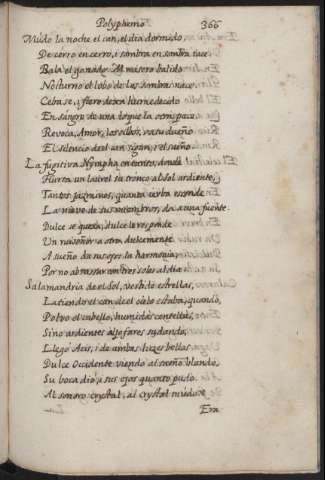 Polyphemo 366
Mudo la noche el can, el dia dormido,
De cerro en cerro, i sombra en sombra iace.
Bala el ganado: Al misero balido
Nocturno el lobo de las sombras nace.
Cebase, i fiero dexa humedecido
En sangre de una lo que la otra pace.
Revoca, Amor, los silbos, o a su dueño
El silencio del can sigan, i el sueño.
La fugitiva Nympha en tanto, donde
Hurta un laurel su tronco al sol ardiente,
Tantos jazmines, quanta ierba esconde
La nieve de sus miembros, da a una fuente.
Dulce se quexa, dulce le responde
Un ruiseñor a otro, i dulcemente
Al sueño da sus ojos la harmonia,
Por no abrasar con tres soles al dia.
Salamandria de el Sol, vestido estrellas,
Latiendo el can de el cielo estaba, quando,
Polvo el cabello, humidas centellas,
Sino ardientes aljofares sudando,
Llegó Acis, i de ambas luzes bellas
Dulce Occidente viendo al sueño blando,
Su boca dió, i sus ojos quanto pudo
Al sonoro crystal, al crystal mudo.
Era